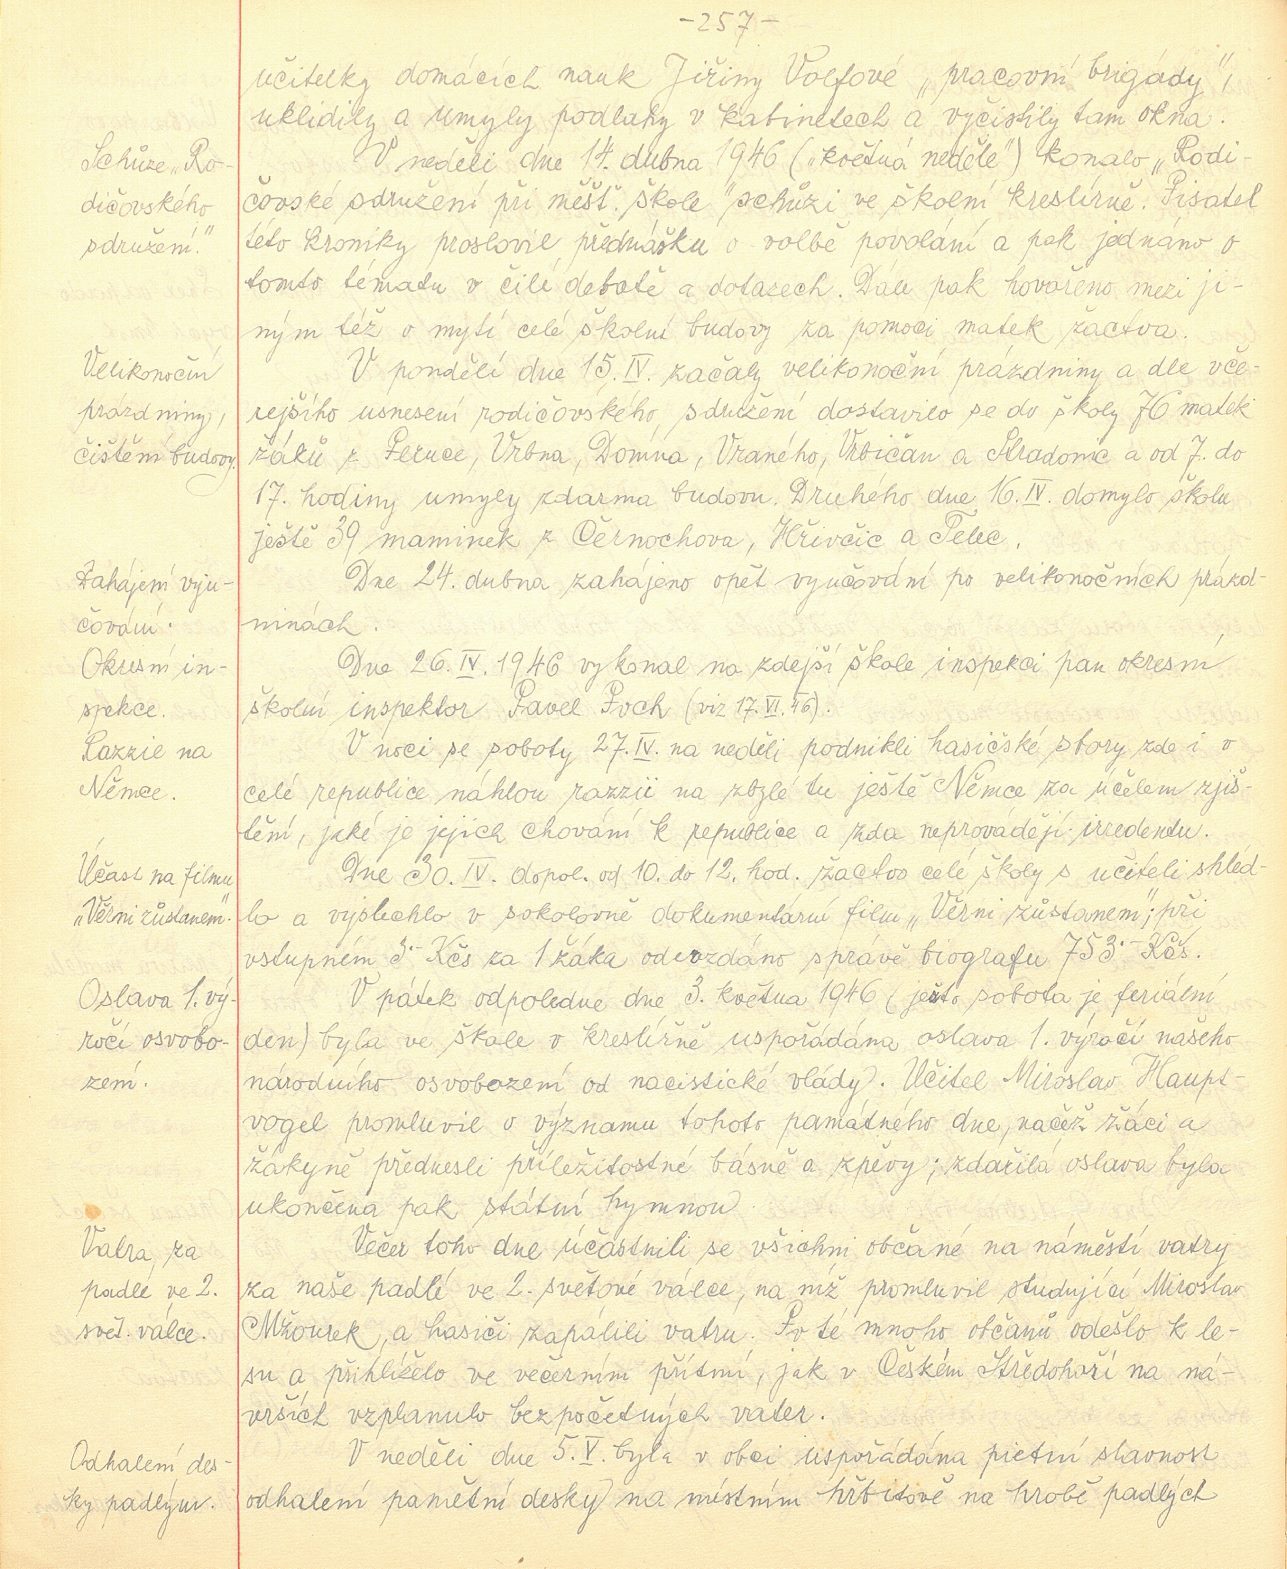 -257-
učitelky domácích nauk Jiřiny Volfové „pracovní brigády",
uklidily a umyly podlahy v kabinetech a vyčistily tam okna.
Schůze „Ro-
dičovského
sdružení."
V neděli dne 14. dubna 1946 („květná neděle") konalo „Rodi-
čovské sdružení při měšť. škole" schůzi ve školní kreslírně. Pisatel
této kroniky proslovil přednášku o volbě povolání a pak jednáno o
tomto tématu v čilé debatě a dotazech. Dále pak hovořeno mezi ji-
ným též o mytí celé školní budovy za pomoci matek žactva.
Velikonoční
prázdniny,
čištění budovy.
V pondělí dne 15. IV. začaly velikonoční prázdniny a dle vče-
rejšího usnesení rodičovského sdružení dostavilo se do školy 76 matek
žáků z Peruce, Vrbna, Donína, Vraného, Vrbičan a Stradonic a od 7. do
17. hodiny umyly zdarma budovu. Druhého dne 16. IV. domylo školu
ještě 39 maminek z Černochova, Hřivčic a Telec.
Zahájení vyu-
čování.
Dne 24. dubna zahájeno opět vyučování po velikonočních prázd-
ninách.
Okresní in-
spekce.
Dne 26. IV. 1946 vykonal na zdejší škole inspekci pan okresní
školní inspektor Pavel Poch (viz 17. VI. 46).
Razzie na
Němce.
V noci se soboty 27. IV. na neděli podnikli hasičské sbory zde i v
celé republice náhlou razzii na zbylé tu ještě Němce za účelem zjiš-
tění, jaké je jejich chování k republice a zda neprovádějí irredentu.
Účast na filmu
„Věrni zůstanem".
Dne 30. IV. dopol. od 10. do 12. hod. žactvo celé školy s učiteli shléd-
lo a vyslechlo v sokolovně dokumentární film „Věrni zůstanem"; při
vstupném 3·- Kčs za 1 žáka odevzdáno správě biografu 753·- Kčs.
Oslava 1. vý-
ročí osvobo-
zení.
V pátek odpoledne dne 3. května 1946 (ježto sobota je feriální
den) byla ve škole v kreslírně uspořádána oslava 1. výročí našeho
národního osvobození od nacistické vlády. Učitel Miroslav Haupt-
vogel promluvil o významu tohoto památného dne, načež žáci a
žákyně přednesli příležitostné básně a zpěvy; zdařilá oslava byla
ukončena pak státní hymnou.
Vatra za
padlé ve 2.
svět. válce.
Večer toho dne účastnili se všichni občané na náměstí vatry
za naše padlé ve 2. světové válce, na níž promluvil studující Miroslav
Mžourek, a hasiči zapálili vatru. Po té mnoho občanů odešlo k le-
su a přihlíželo ve večerním přítmí, jak v Českém Středohoří na ná-
vrších vzplanulo bezpočetných vater.
Odhalení des-
ky padlým.
V neděli dne 5. V. byla v obci uspořádána pietní slavnost
odhalení pamětní desky na místním hřbitově na hrobě padlých